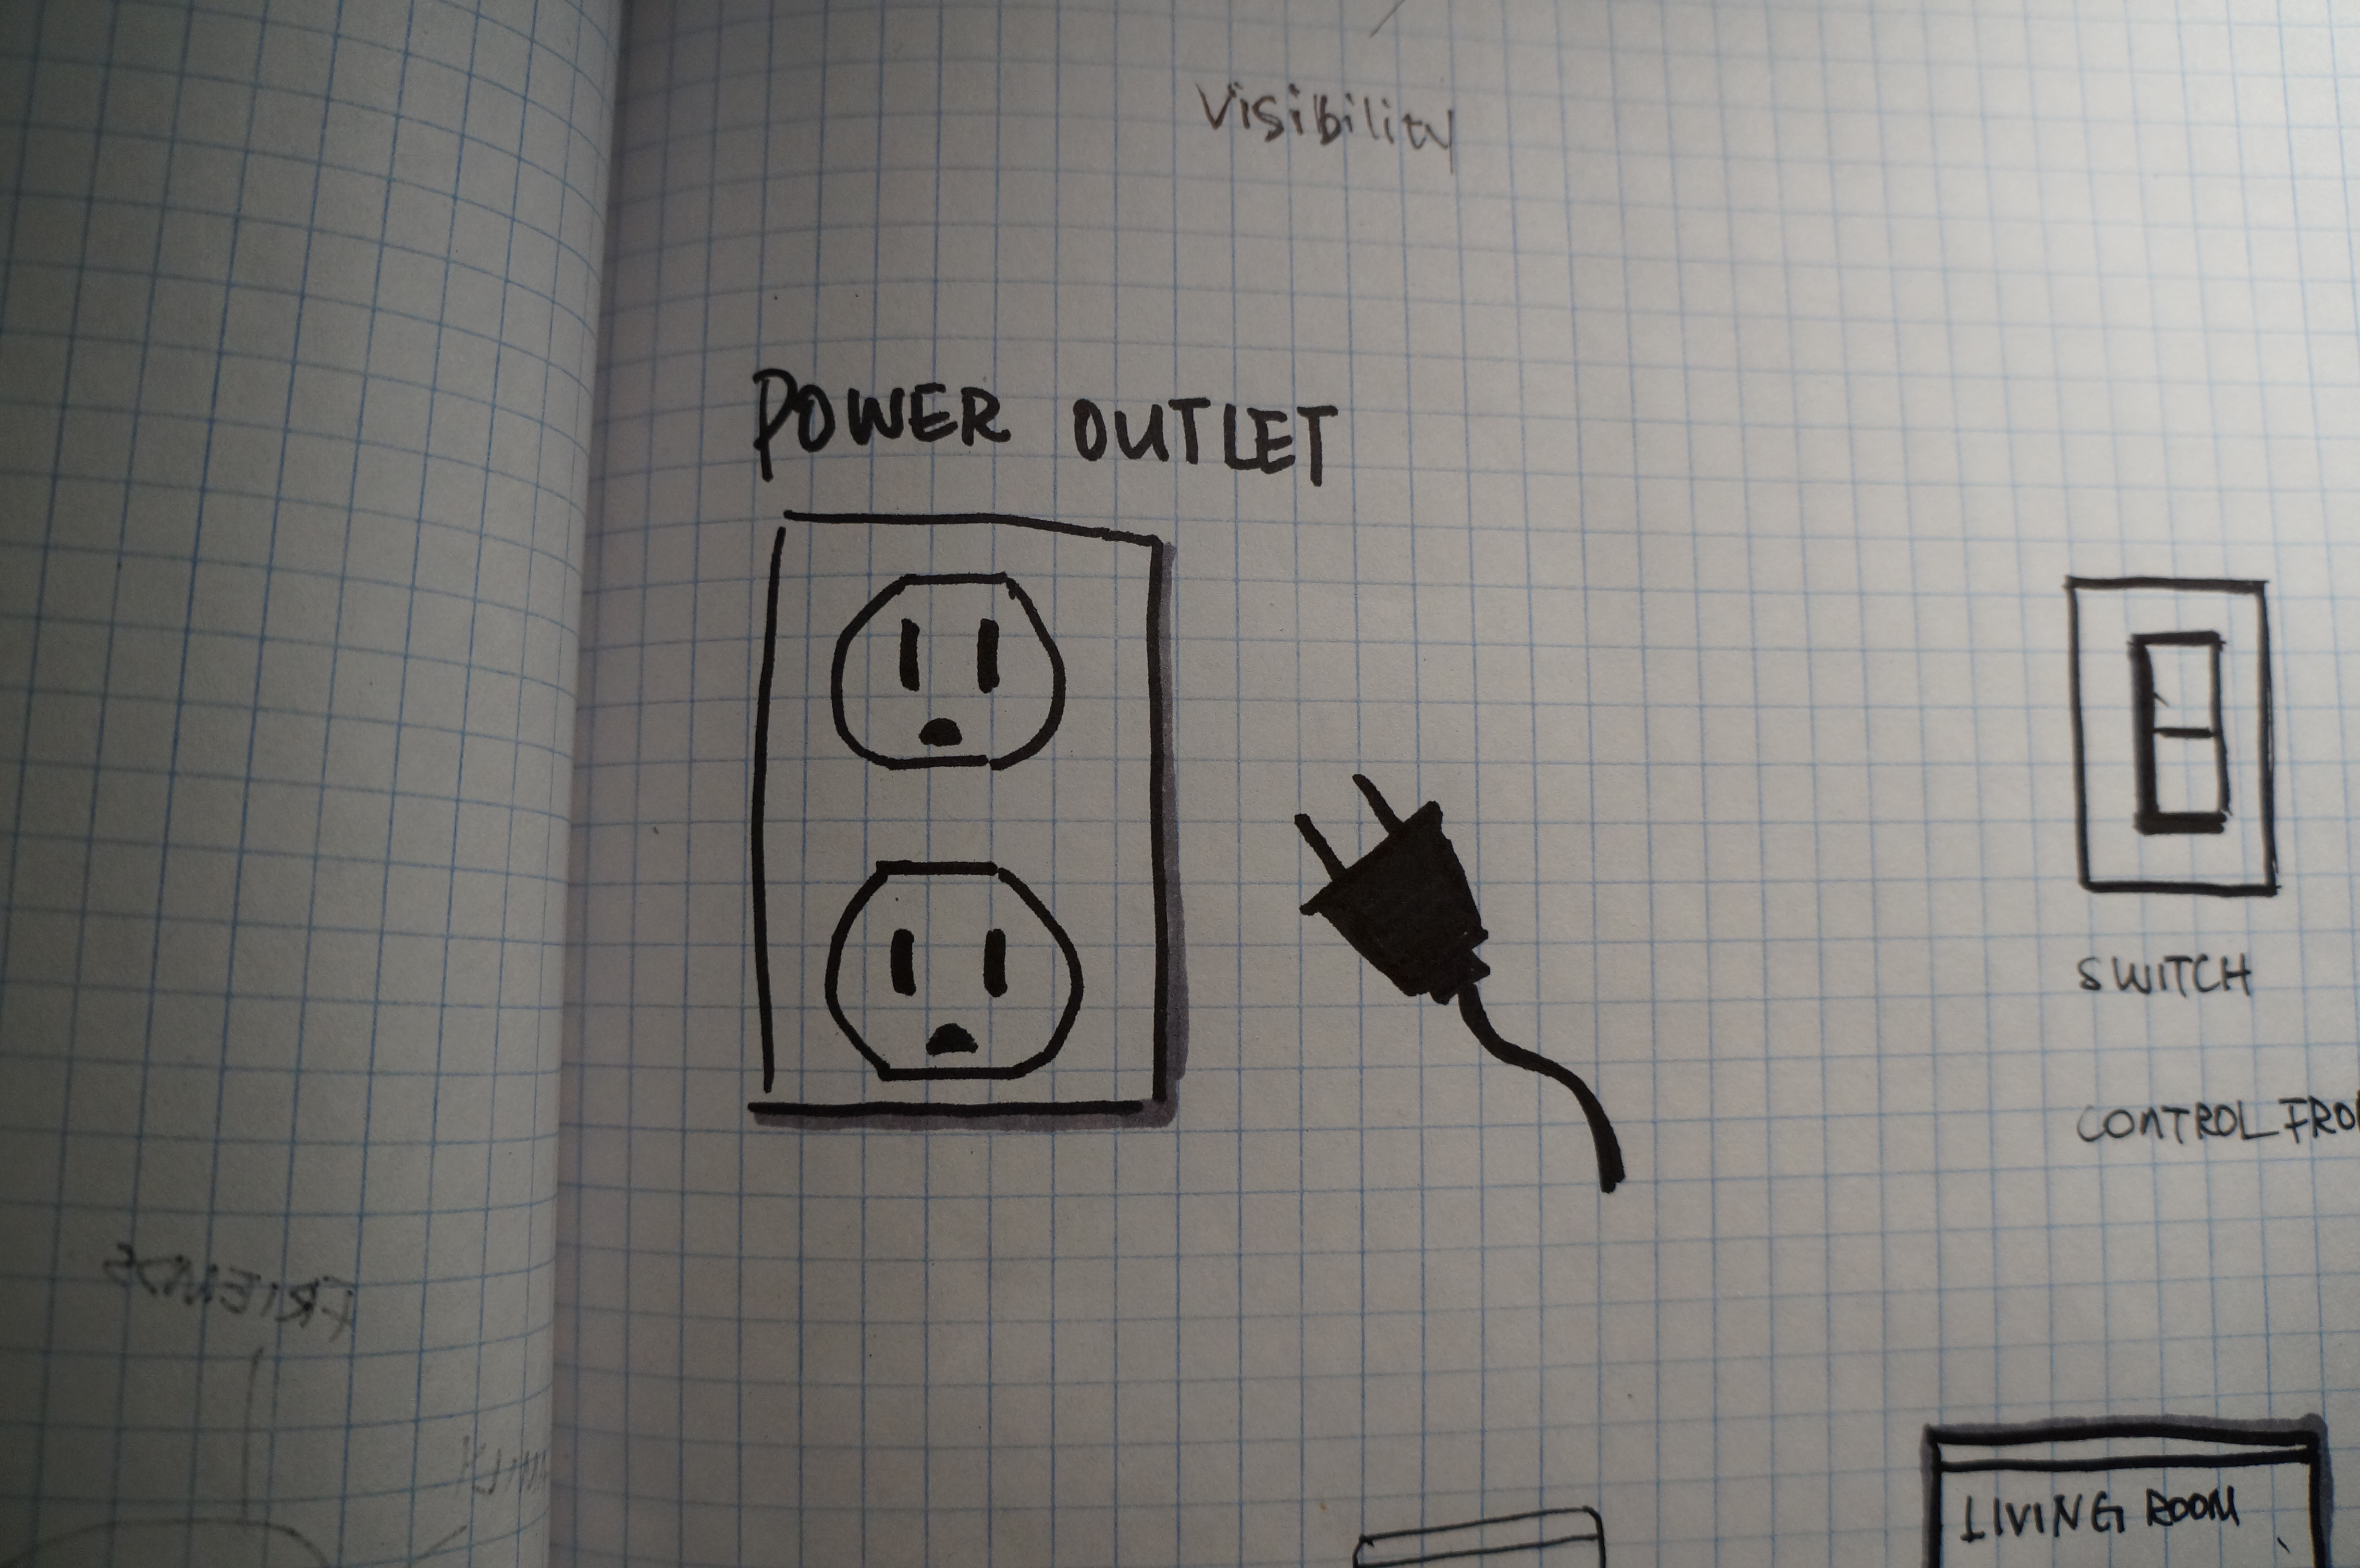 Visibility
POWER OUTLET
SWITCH
CONTROL FRO
LIVING ROOM
FRIENDS